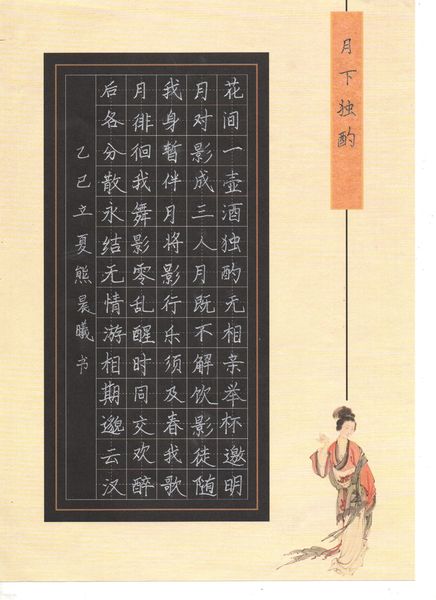 月下独酌
花间一壶酒独酌无相亲举杯邀明
月对影成三人月既不解饮影徒随
我身暂伴月将影行乐须及春我歌
月徘徊我舞影零乱醒时同交欢醉
后各分散永结无情游相期邈云汉
乙巳立夏熊晨曦书